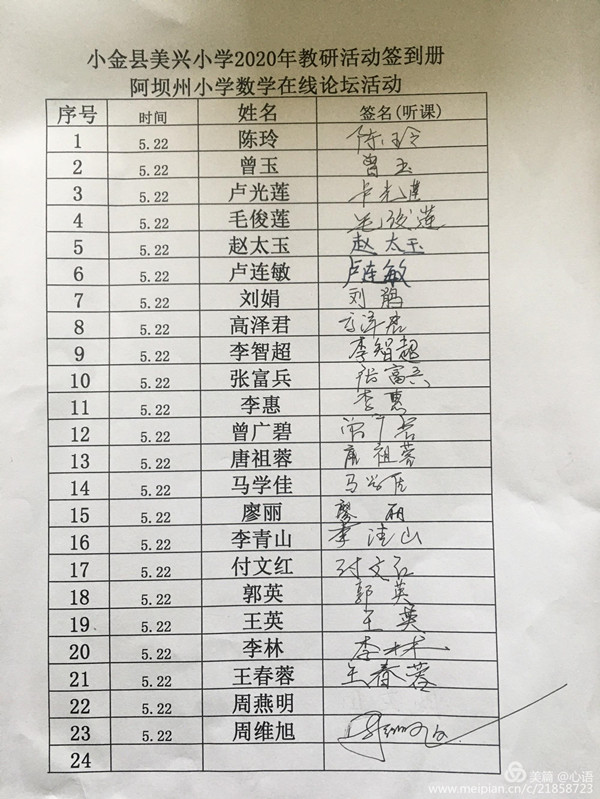 小金县美兴小学2020年教研活动签到册
阿坝州小学数学在线论坛活动
序号 时间 姓名 签名(听课)
1 5.22 陈玲 陈玲
2 5.22 曾玉 曾玉
3 5.22 卢光莲 卢光莲
4 5.22 毛俊莲 毛俊莲
5 5.22 赵太玉 赵太玉
6 5.22 卢连敏 卢连敏
7 5.22 刘娟 刘鹃
8 5.22 高泽君 高泽君
9 5.22 李智超 李智超
10 5.22 张富兵 张富兵
11 5.22 李惠 李惠
12 5.22 曾广碧
13 5.22 唐祖蓉 唐祖蓉
14 5.22 马学佳 马学佳
15 5.22 廖丽 廖丽
16 5.22 李青山 李青山
17 5.22 付文红 付文红
18 5.22 郭英 郭英
19 5.22 王英 王英
20 5.22 李林 李林
21 5.22 王春蓉 王春蓉
22 5.22 周燕明
23 5.22 周维旭
24
美篇 @心语
www.meipian.cn/c/21858723